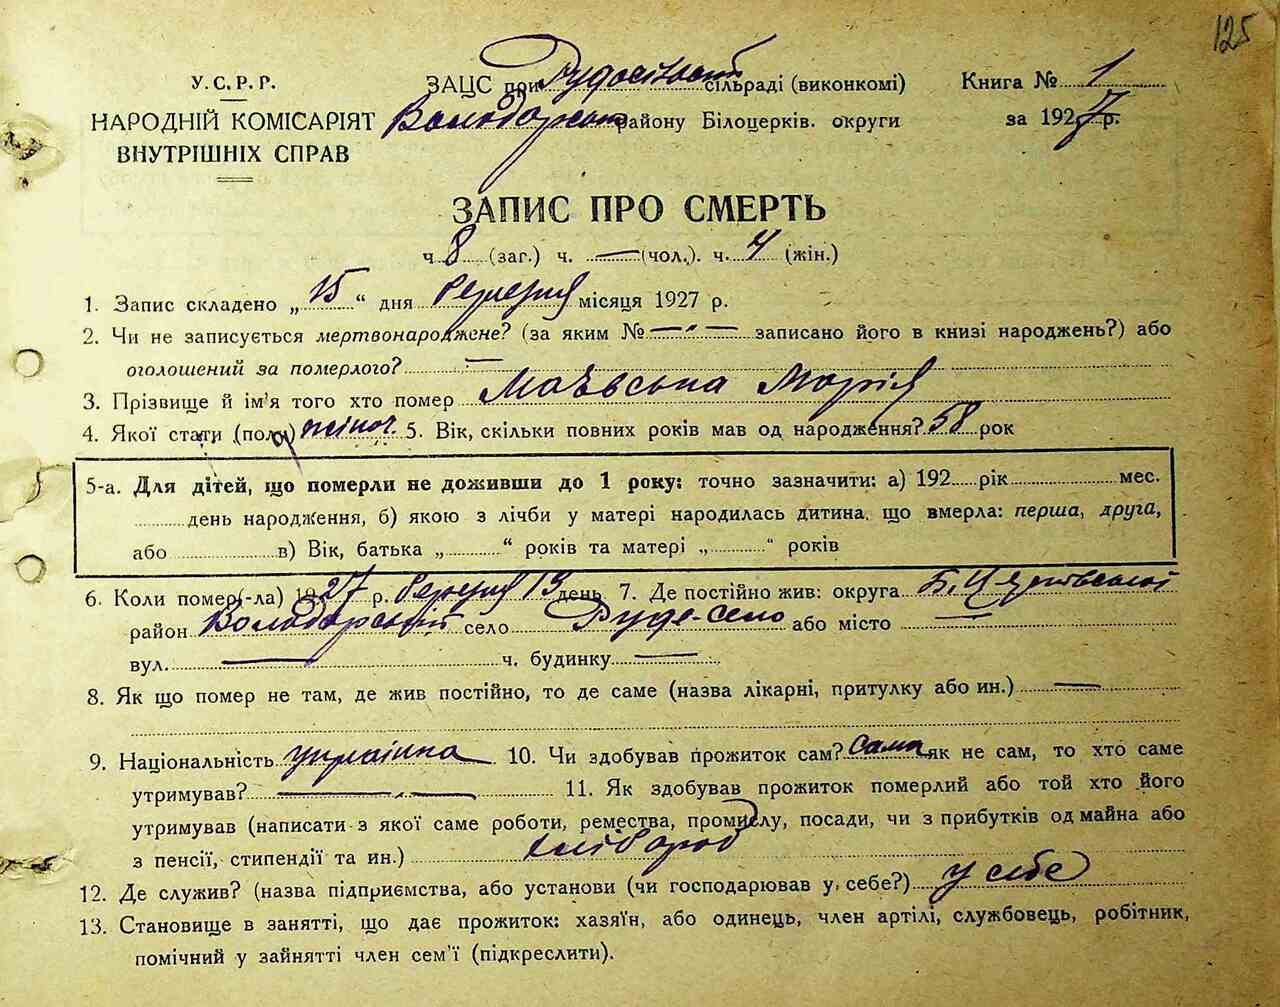 125
У.С.Р.Р.
НАРОДНІЙ КОМІСАРІЯТ
ВНУТРІШНІХ СПРАВ
ЗАЦС при Рудосільскій сільраді (виконкомі)
Володарськ району Білоцерків. округи
Книга № 1
за 1927 р.
ЗАПИС ПРО СМЕРТЬ
ч 8 (заг.) ч. — (чол.). ч. 4 (жін.)
1. Запис складено „ 15 “ дня березня місяця 1927 р.
2. Чи не записується мертвонароджене? (за яким № — записано його в книзі народжень?) або
оголошений за померлого? —
3. Прізвище й ім'я того хто помер Маєвська Марія
4. Якої стати (пола) жіноч. 5. Вік, скільки повних років мав од народження? 58 рок
5-а. Для дітей, що померли не доживши до 1 року: точно зазначити: а) 192 рік мес.
день народження, б) якою з лічби у матері народилась дитина, що вмерла: перша, друга,
або в) Вік, батька „ “ років та матері „ “ років
6. Коли помер(-ла) 1927 р. березня 13 день 7. Де постійно жив: округа Б. Церківської
район Володарський село Руде-село або місто —
вул. — ч. будинку —
8. Як що помер не там, де жив постійно, то де саме (назва лікарні, притулку або ин.) —
9. Національність українка 10. Чи здобував прожиток сам? Сама як не сам, то хто саме
утримував? — 11. Як здобував прожиток померлий або той хто його
утримував (написати з якої саме роботи, ремества, промислу, посади, чи з прибутків од майна або
з пенсії, стипендії та ин.) хлібороб
12. Де служив? (назва підприємства, або установи (чи господарював у себе?) у себе
13. Становище в занятті, що дає прожиток: хазяїн, або одинець, член артілі, службовець, робітник,
помічний у зайнятті член сем'ї (підкреслити).